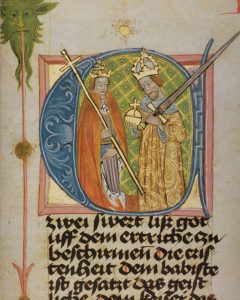 zwei swert liß got
uff dem ertriche zu
beschirmen die cris
tenheit dem babiste
ist gesatzt das geist
liche dem keiser das